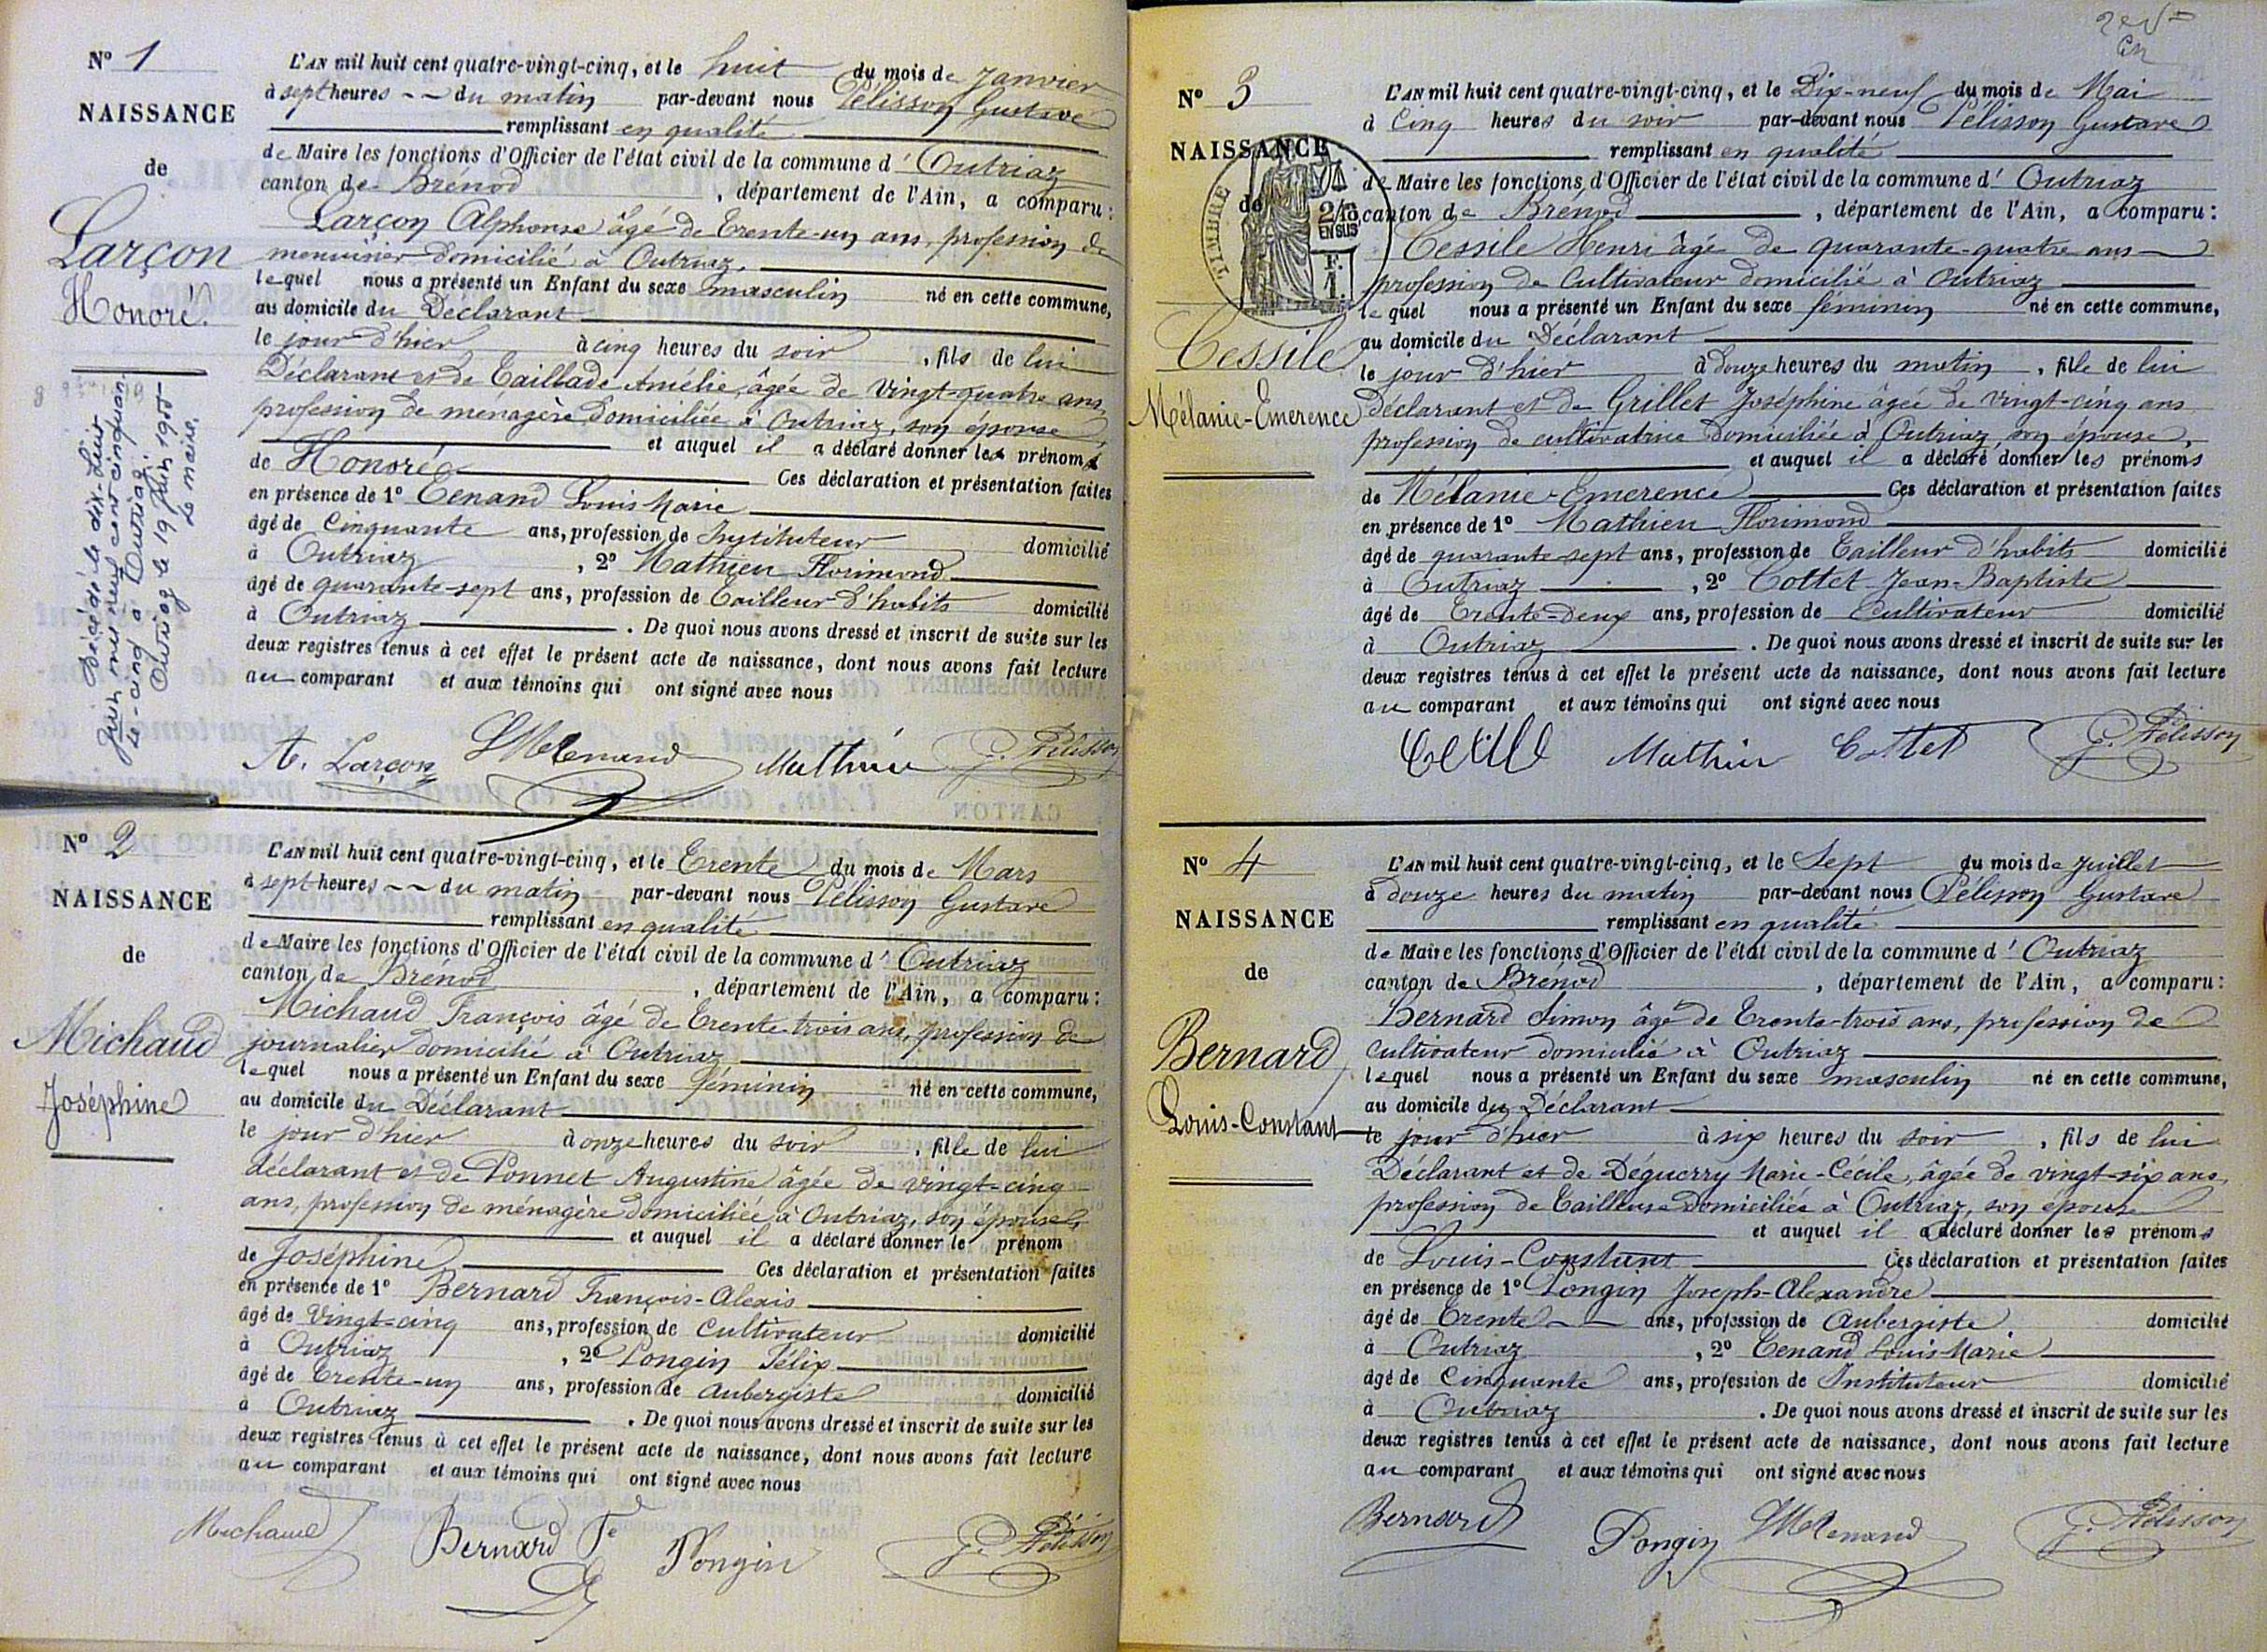 N° 1
NAISSANCE
de
Larçon
Honoré.
Décédé le dix-huit
Juin mil neuf cent cinquan-
te-cinq à Outriaz.
Outriaz le 19 Juin 1955
Le maire,
L'AN mil huit cent quatre-vingt-cinq, et le huit du mois de Janvier
à sept heures du matin par-devant nous Pélisson Gustave
remplissant en qualité
de Maire les fonctions d'Officier de l'état civil de la commune d'Outriaz
canton de Brénod, département de l'Ain, a comparu :
Larçon Alphonse âgé de Trente-un ans, profession de
menuisier domicilié à Outriaz,
lequel nous a présenté un Enfant du sexe masculin né en cette commune,
au domicile du Déclarant
le jour d'hier à cinq heures du soir, fils de lui
Déclarant et de Taillade Amélie, âgée de vingt-quatre ans,
profession de ménagère domiciliée à Outriaz, son épouse,
et auquel il a déclaré donner les prénoms
de Honoré Ces déclaration et présentation faites
en présence de 1° Tenand Louis Marie
âgé de Cinquante ans, profession de Instituteur domicilié
à Outriaz, 2° Mathieu Florimond
âgé de quarante-sept ans, profession de Tailleur d'habits domicilié
à Outriaz. De quoi nous avons dressé et inscrit de suite sur les
deux registres tenus à cet effet le présent acte de naissance, dont nous avons fait lecture
au comparant et aux témoins qui ont signé avec nous
A. Larçon LMTenand Mathieu G. Pélisson
N° 2
NAISSANCE
de
Michaud
Joséphine
L'AN mil huit cent quatre-vingt-cinq, et le Trente du mois de Mars
à sept heures du matin par-devant nous Pélisson Gustave
remplissant en qualité
de Maire les fonctions d'Officier de l'état civil de la commune d'Outriaz
canton de Brénod, département de l'Ain, a comparu :
Michaud François âgé de Trente trois ans, profession de
journalier domicilié à Outriaz
lequel nous a présenté un Enfant du sexe féminin né en cette commune,
au domicile du Déclarant
le jour d'hier à onze heures du soir, fille de lui
déclarant et de Ponnet Augustine âgée de vingt-cinq
ans, profession de ménagère domiciliée à Outriaz, son épouse,
et auquel il a déclaré donner le prénom
de Joséphine Ces déclaration et présentation faites
en présence de 1° Bernard François-Alexis
âgé de Vingt-cinq ans, profession de Cultivateur domicilié
à Outriaz, 2° Pongin Félix
âgé de Trente-un ans, profession de aubergiste domicilié
à Outriaz. De quoi nous avons dressé et inscrit de suite sur les
deux registres tenus à cet effet le présent acte de naissance, dont nous avons fait lecture
au comparant et aux témoins qui ont signé avec nous
Michaud Bernard Fs Pongin G. Pélisson
N° 3
NAISSANCE
de
TIMBRE
2/10
EN SUS
F.
1.
Cessile
Mélanie-Emerence
L'AN mil huit cent quatre-vingt-cinq, et le Dix-neuf du mois de Mai
à Cinq heures du soir par-devant nous Pélisson Gustave
remplissant en qualité
de Maire les fonctions d'Officier de l'état civil de la commune d'Outriaz
canton de Brénod, département de l'Ain, a comparu :
Cessile Henri âgé de quarante-quatre ans
profession de Cultivateur domicilié à Outriaz
lequel nous a présenté un Enfant du sexe féminin né en cette commune,
au domicile du Déclarant
le jour d'hier à douze heures du matin, fille de lui
déclarant et de Grillet Joséphine âgée de vingt-cinq ans
profession de cultivatrice domiciliée à Outriaz, son épouse,
et auquel il a déclaré donner les prénoms
de Mélanie-Emerence Ces déclaration et présentation faites
en présence de 1° Mathieu Florimond
âgé de quarante-sept ans, profession de Tailleur d'habits domicilié
à Outriaz, 2° Cottet Jean-Baptiste
âgé de Trente-Deux ans, profession de Cultivateur domicilié
à Outriaz. De quoi nous avons dressé et inscrit de suite sur les
deux registres tenus à cet effet le présent acte de naissance, dont nous avons fait lecture
au comparant et aux témoins qui ont signé avec nous
Cessile Mathieu Cottet G. Pélisson
N° 4
NAISSANCE
de
Bernard
Louis-Constant
L'AN mil huit cent quatre-vingt-cinq, et le Sept du mois de Juillet
à douze heures du matin par-devant nous Pélisson Gustave
remplissant en qualité
de Maire les fonctions d'Officier de l'état civil de la commune d'Outriaz
canton de Brénod, département de l'Ain, a comparu :
Bernard Simon âgé de Trente-trois ans, profession de
Cultivateur domicilié à Outriaz
lequel nous a présenté un Enfant du sexe masculin né en cette commune,
au domicile du Déclarant
le jour d'hier à six heures du soir, fils de lui
Déclarant et de Déguerry Marie-Cécile, âgée de vingt-six ans,
profession de Tailleuse domiciliée à Outriaz, son épouse
et auquel il a déclaré donner les prénoms
de Louis-Constant Ces déclaration et présentation faites
en présence de 1° Pongin Joseph-Alexandre
âgé de Trente ans, profession de Aubergiste domicilié
à Outriaz, 2° Tenand Louis Marie
âgé de Cinquante ans, profession de Instituteur domicilié
à Outriaz. De quoi nous avons dressé et inscrit de suite sur les
deux registres tenus à cet effet le présent acte de naissance, dont nous avons fait lecture
au comparant et aux témoins qui ont signé avec nous
Bernard Pongin LMTenand G. Pélisson